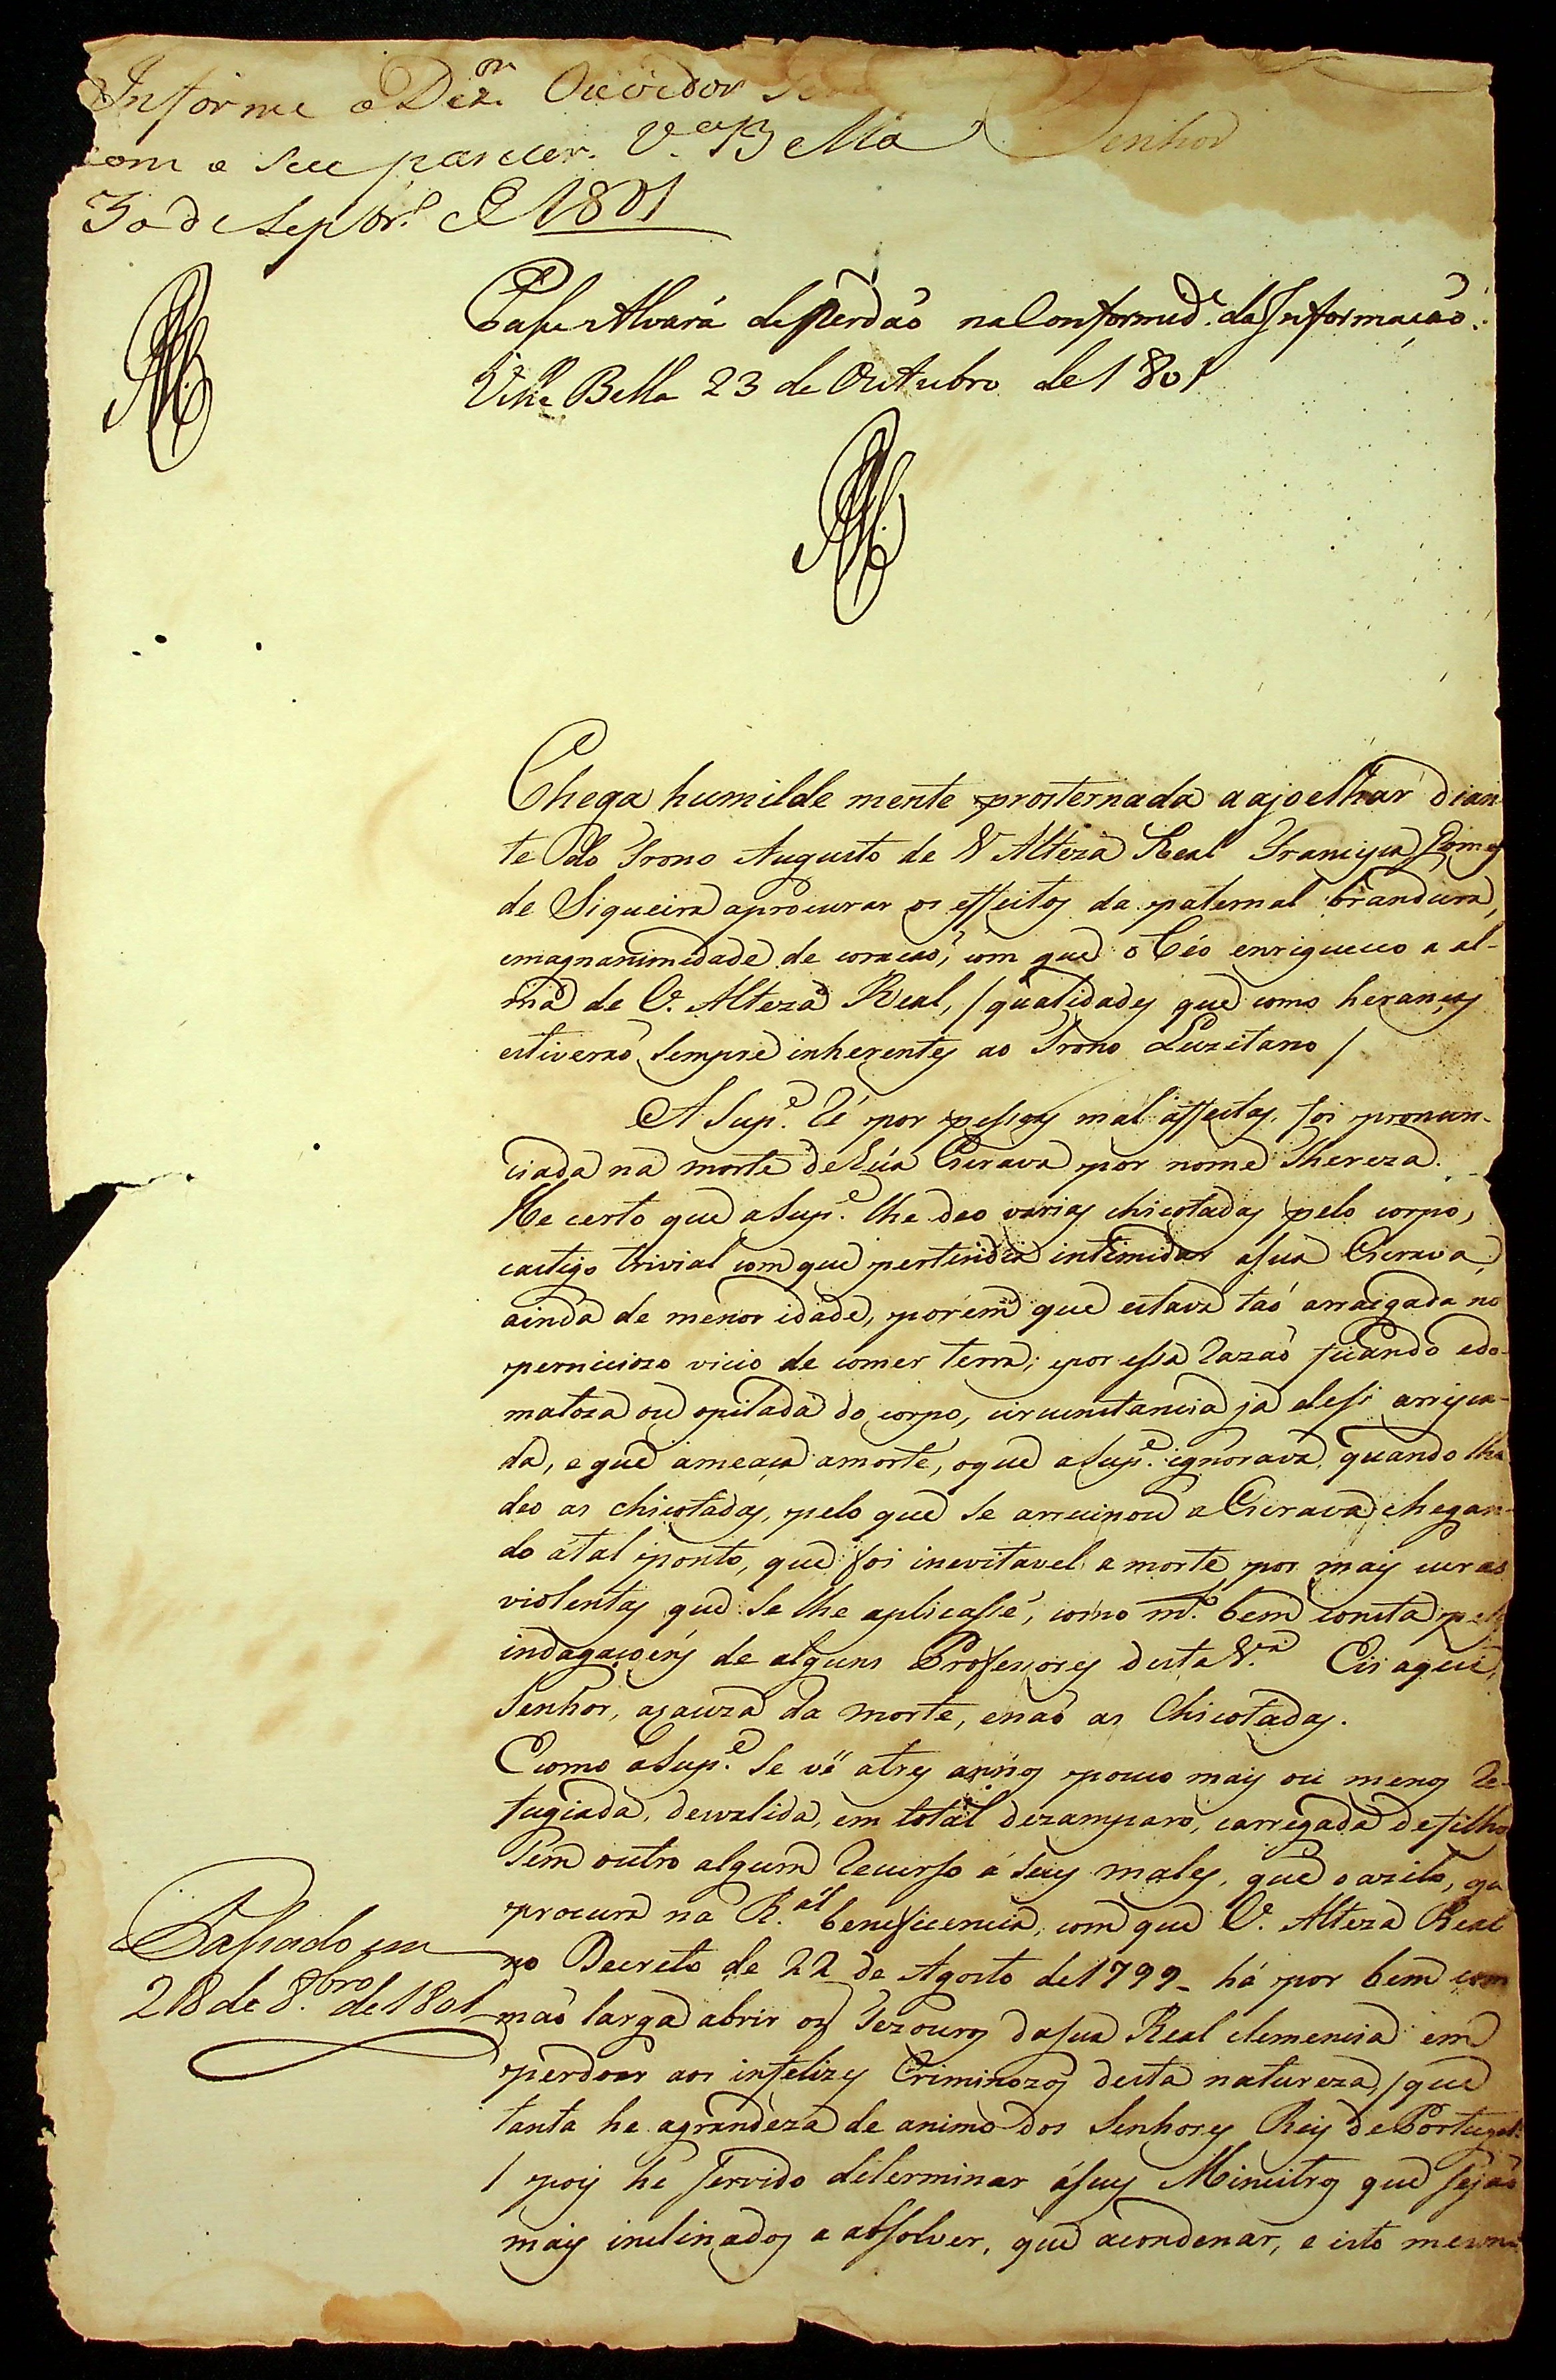 Informe o Dez.or Ouvidor
com o seu parecer. V.a Bella
30 de Septbr.o de 1801
Senhor
Passe Alvará de Perdaõ na Conformid.e da Informaçaõ.
Villa Bella 23 de Outubro de 1801
Chega humilde mente prosternada a ajoelhar dian
te do Trono Augusto de V Alteza Real Francisca Gomes
de Siqueira aprocurar os effeitos da paternal brandura,
emagnanimidade de coracaõ, com que o Céo enriqueceo a al-
ma de V. Alteza Real, / qualidades que como heranças
estiveraõ sempre inherentes ao Trono Luzitano /
A Sup.e Ré por pessoas mal affectas, foi pronun-
ciada na morte de húa Escrava por nome Thereza.
He certo que a Sup.e lhe deo varias chicotadas pelo corpo,
castigo trivial com que pertendia intimidar asua Escrava,
ainda de menor idade, porem que estava taõ arraigada no
pernicioso vicio de comer terra; epor essa razaõ ficando edo-
matoza ou opilada do corpo, circunstancia ja desi arrisca-
da, e que ameaça amorte, oque a Sup.e ignorava quando lhe
deo as chicotadas, pelo que se arruinou a Escrava chegan-
do átal ponto, que foi inevitavel a morte por mais curas
violentas que se lhe aplicasse, como m.to bem consta pelas
indagaçoens de alguns Professores desta V.a Eis aqui,
Senhor, acauza da morte, enaõ as Chicotadas.
Ecomo a Sup.e se vê atres annos pouco mais ou menos re-
fugiada, desvalida, em total dezamparo, carregada de filhos
sem outro algum recurso á seus males, que o azilo, que
procura na R.al beneficencia, com que V. Alteza Real
no Decreto de 22 de Agosto de 1799 - há por bem com
maõ larga abrir os Tezouros dasua Real clemencia em
perdoar aos infelizes Criminozos desta natureza, / que
tanta he agrandeza de animo dos Senhores Reis de Portugal
/ pois he servido determinar ásuas Ministros que sejaõ
mais inclinados a absolver, que acondenar, e isto mesmo
Passado em
28 de 8.bro de 1801